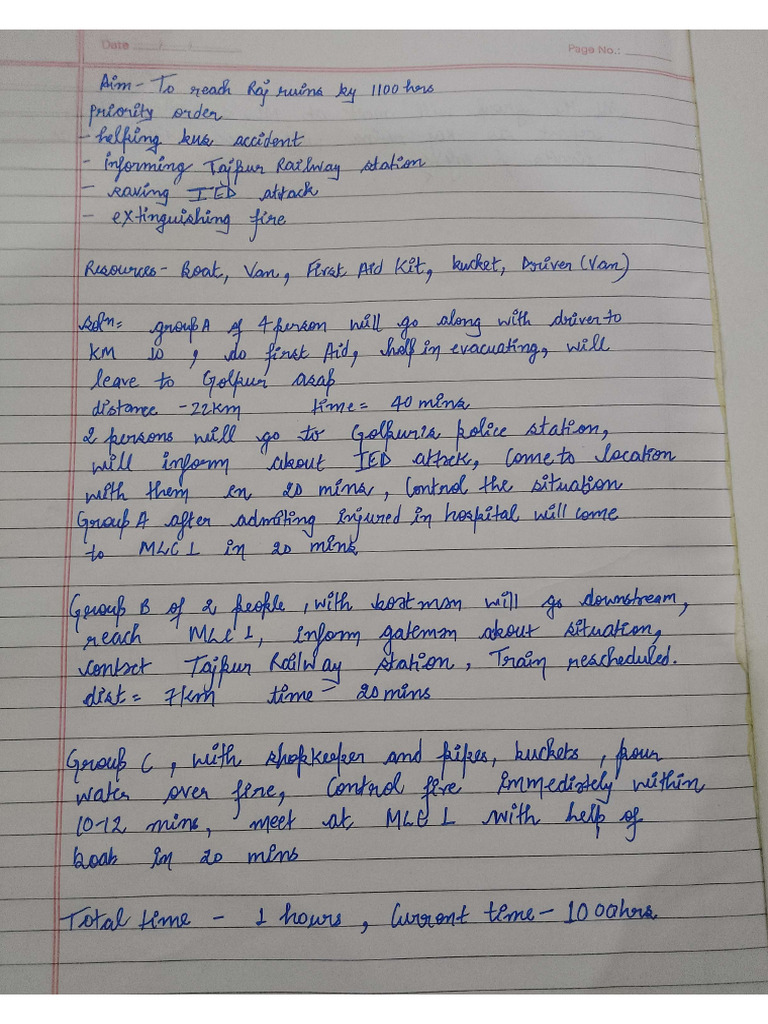 Date
Page No.:
Aim - To reach Raj ruins by 1100 hrs
priority order
- helping bus accident
- informing Tajpur Railway station
- saving IED attack
- extinguishing fire
Resources - Boat, Van, First Aid Kit, bucket, Driver (Van)
Soln = group A of 4 person will go along with driver to
KM 10 , do first Aid, help in evacuating, will
leave to Golpur asap
distance - 22km time = 40 mins
2 persons will go to Golpuris police station,
will inform about IED attack, come to location
with them en 20 mins, control the situation
Group A after admiting injured in hospital will come
to MLC 1 in 20 mins
Group B of 2 people, with boatman will go downstream,
reach MLC 1, inform gateman about situation,
contact Tajpur Railway station, Train rescheduled.
dist = 7km time = 20 mins
Group C, with shopkeeper and pipes, buckets, pour
water over fire, control fire immediately within
10-12 mins, meet at MLC 1 with help of
boat in 20 mins
Total time - 1 hours, Current time - 10 00hrs.